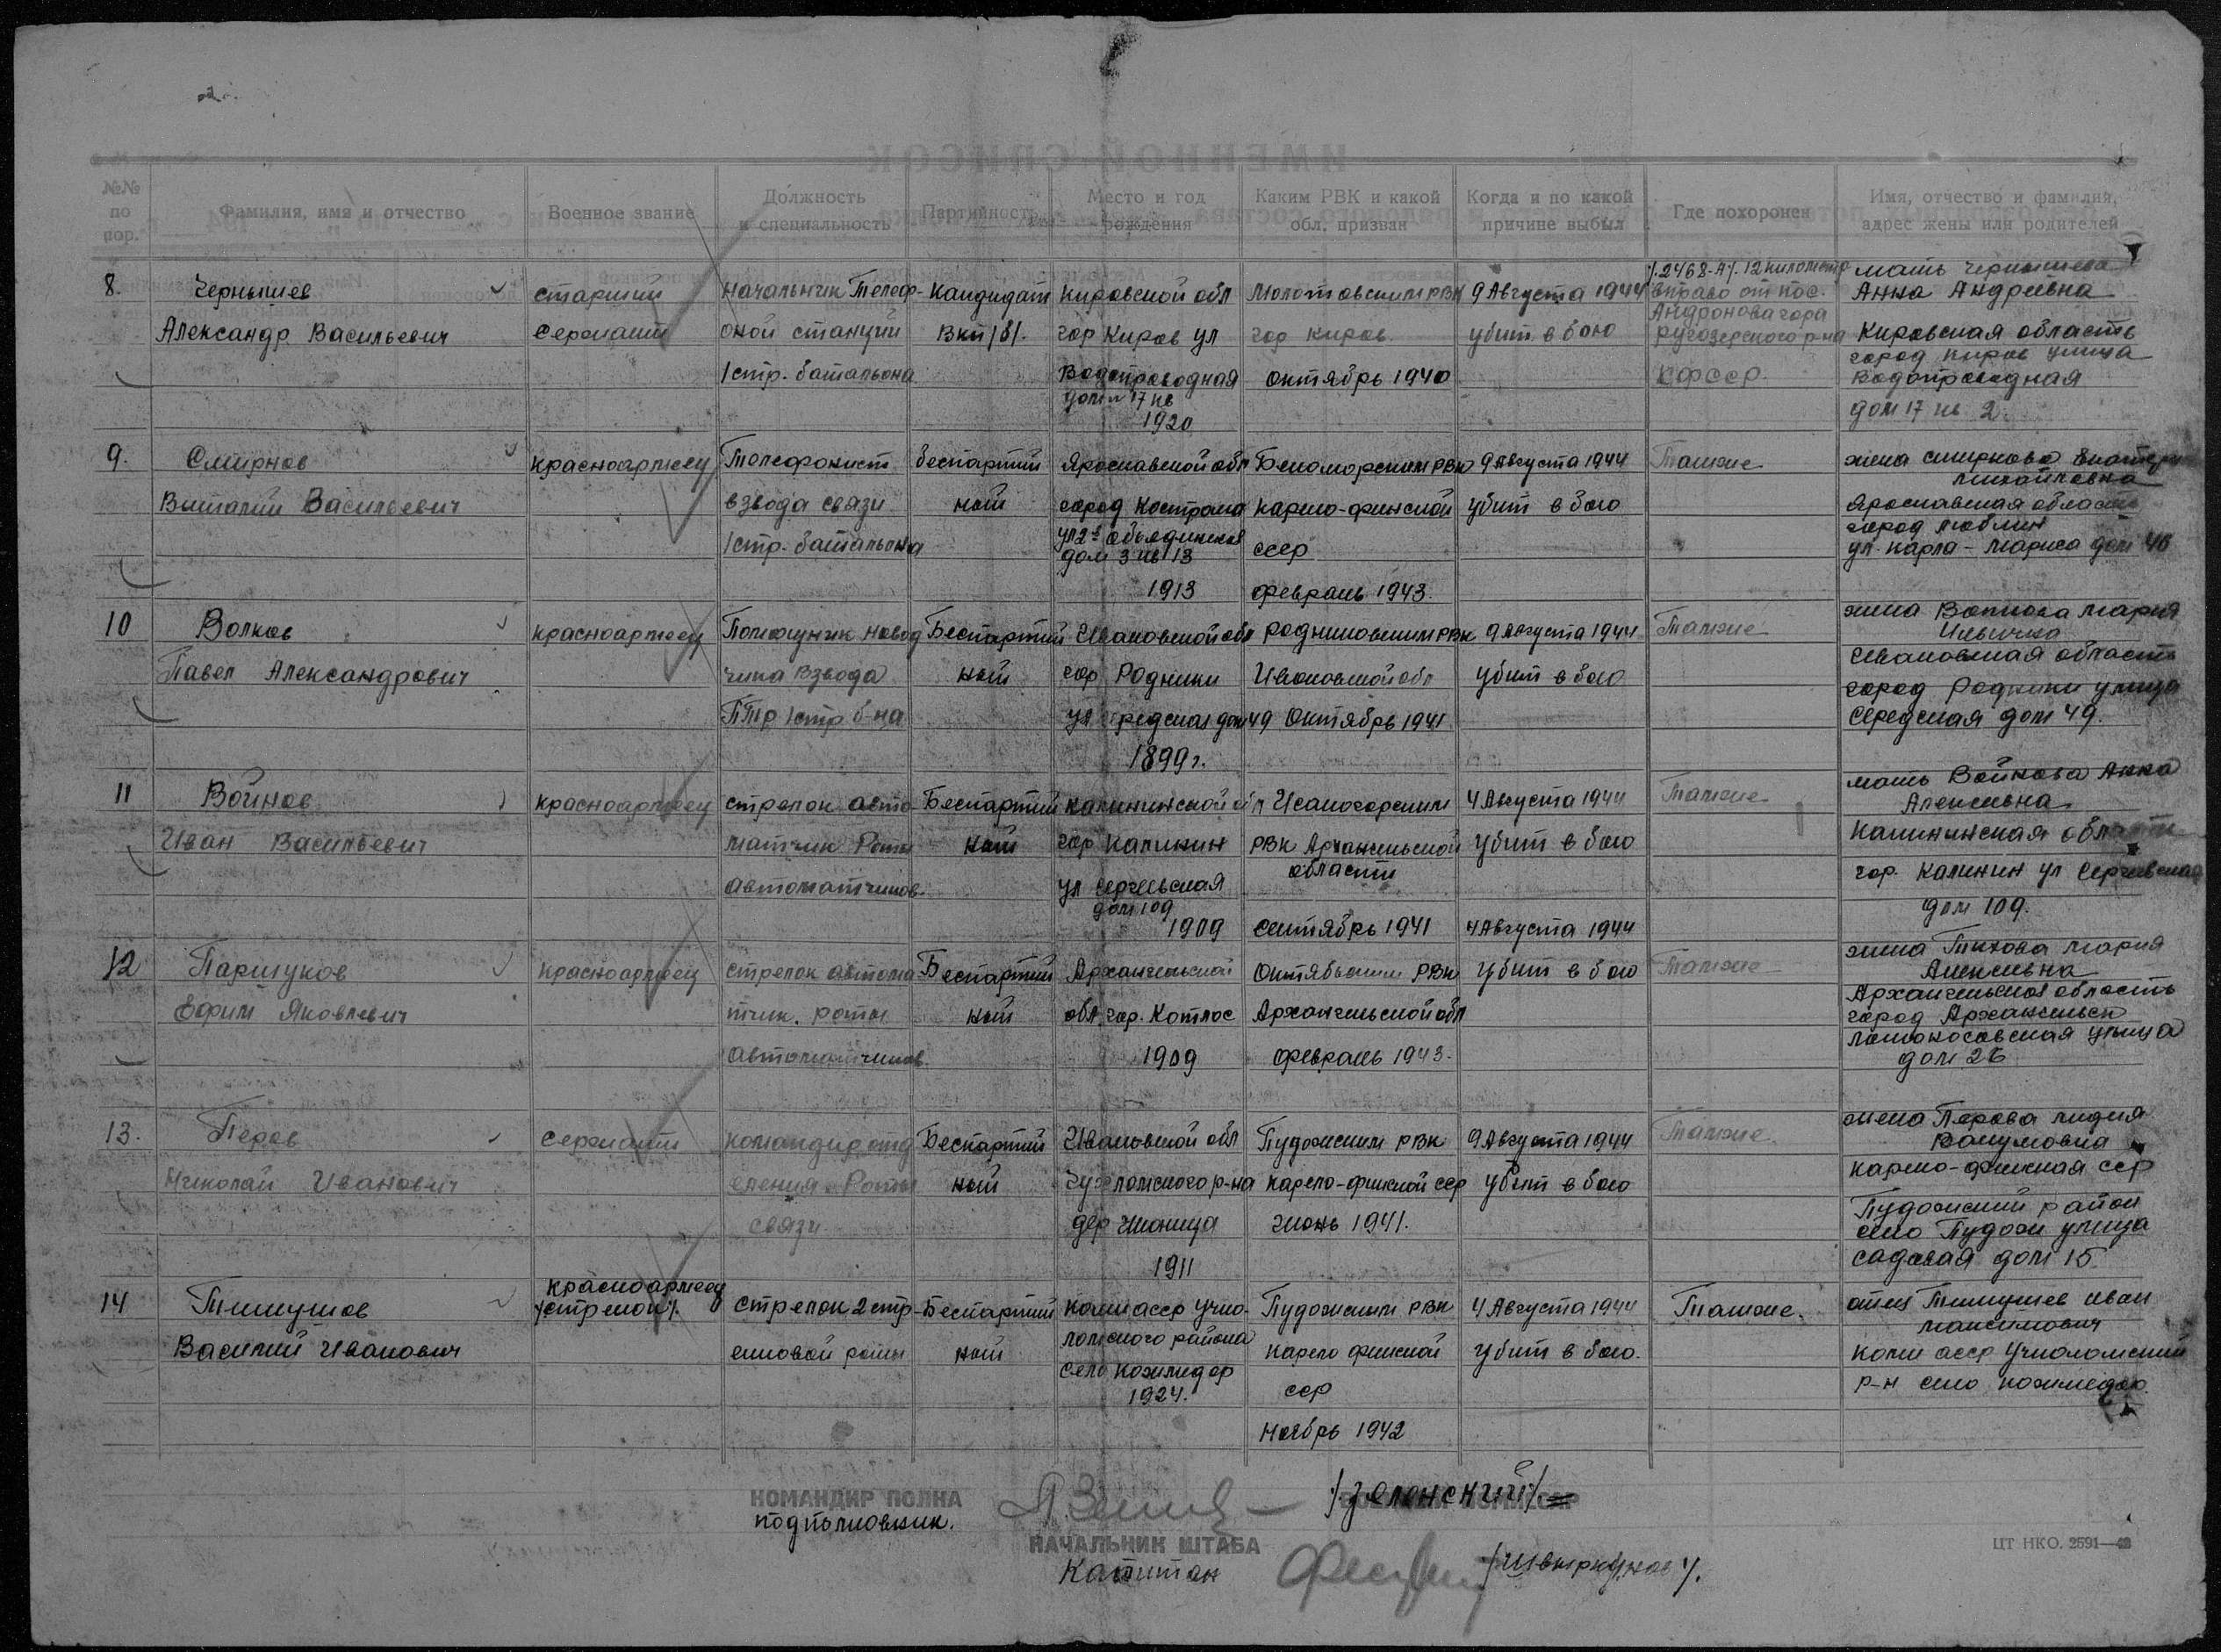 №№ по пор.
Фамилия, имя и отчество
Военное звание
Должность и специальность
Партийность
Место и год рождения
Каким РВК и какой обл. призван
Когда и по какой причине выбыл
Где похоронен
Имя, отчество и фамилия, адрес жены или родителей
8.
Чернышев
Александр Васильевич
старший
сержант
начальник Телеф-
оной станций
1 стр. батальона
Кандидат
ВКП/б/.
Кировской обл
гор Киров ул
Водопроводная
1920
Молотовским РВК
гор Киров.
октябрь 1940
9 Августа 1944
убит в бою
12 километр
вправо от пос.
Андронова гора
Ругозерского р-на
КФССР.
мать Чернышева
Анна Андреевна
Кировская область
город Киров улица
Водопроводная
дом 17 кв 2.
9.
Смирнов
Виталий Васильевич
красноармеец
Телефонист
взвода связи
1 стр. батальона
беспартий
ный
Ярославской обл
город Кострома
дом 3 кв 13
1913
Беломорским РВК
Карело-финской
ссср
февраль 1943.
9 Августа 1944
убит в бою
Также
жена Смирнова
Михайловна
Ярославская область
город Любим
ул. Карла-Маркса дом 46
10
Волков
Павел Александрович
красноармеец
Помощник навод
чика взвода
ПТР 1 стр б-на
Беспартий
ный
Ивановской обл
гор Родники
дом 49
1899 г.
Родниковским РВК
Ивановской обл
Октябрь 1941
9 Августа 1944
убит в бою
Также
жена Волкова Мария
Ильична
Ивановская область
город Родники улица
Середская дом 49.
11
Войнов
Иван Васильевич
красноармеец
стрелок авто-
матчик Роты
автоматчиков.
Беспартий
ный
Калининской
гор Калинин
ул Сергевская
дом 109
1909
Исакогорским
РВК Архангельской
области
сентябрь 1941
4 Августа 1944
убит в бою
Также
мать Войнова Анна
Алексевна
Калининская область
гор. Калинин ул Сергевская
дом 109.
12
Паршуков
Ефим Яковлевич
красноармеец
стрелок автома
тчик. роты
Автоматчиков.
Беспартий
ный
Архангельской
обл. гор. Котлос
1909
Октябьским РВК
Архангельской обл
февраль 1943.
4 Августа 1944
убит в бою
Также
жена Тихова Мария
Алексевна
Архангельская область
город Архангельск
Ломоносовская улица
дом 26
13.
Перов
Николай Иванович
сержант
командир отд
еления Роты
связи
Беспартий
ный
Ивановской обл
Чухломского р-на
1911
Пудожским РВК
Карело-финской сср
июнь 1941.
9 Августа 1944
убит в бою
Также.
жена Перова Лидия
Карело-финская сср
Пудожский район
село Пудож улица
садовая дом 15
14
Тимушов
Василий Иванович
красноармеец
/стрелок/.
стрелок 2 стр-
елковой роты
Беспартий
ный
Коми асср
района
село Кожмудор
1924.
Пудожским РВК
Карело финской
сср
Ноябрь 1942
4 Августа 1944
убит в бою.
Также.
отец Тимушев Иван
Максимович
Коми асср
р-н село Кожмудор.
КОМАНДИР ПОЛКА
подполковник.
/Зеленский/
НАЧАЛЬНИК ШТАБА
Капитан
/Швыркунов/.
ЦТ НКО. 2591—42